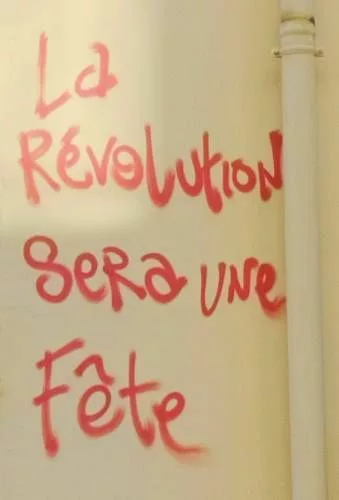 La
Révolution
Sera une
Fête